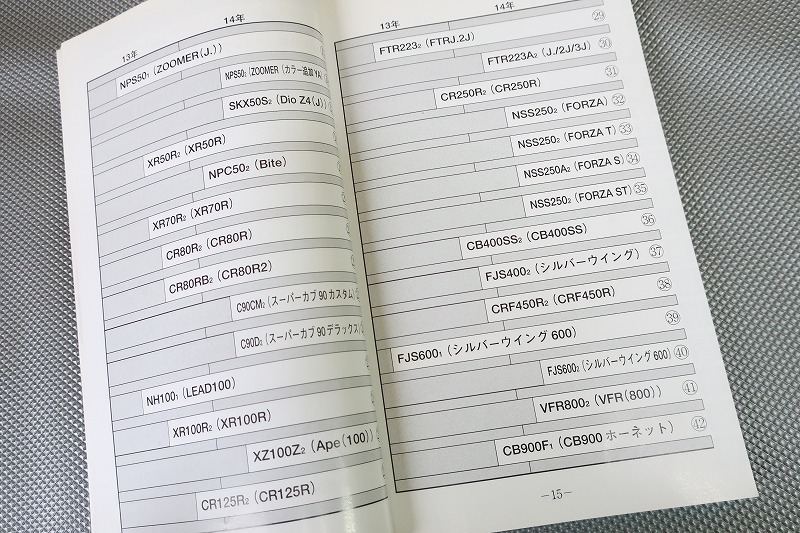 13年 14年
NPS50₁ (ZOOMER(J.))
NPS50₂ (ZOOMER (カラー追加 YA)
SKX50S₂ (Dio Z4(J))
XR50R₂ (XR50R)
NPC50₂ (Bite)
XR70R₂ (XR70R)
CR80R₂ (CR80R)
CR80RB₂ (CR80R2)
C90CM₂ (スーパーカブ90カスタム)
C90D₂ (スーパーカブ90デラックス)
NH100₁ (LEAD100)
XR100R₂ (XR100R)
XZ100Z₂ (Ape(100))
CR125R₂ (CR125R)
13年 14年
FTR223₂ (FTRJ.2J) ㉙
FTR223A₂ (J./2J/3J) ㉚
CR250R₂ (CR250R) ㉛
NSS250₂ (FORZA) ㉜
NSS250₂ (FORZA T) ㉝
NSS250A₂ (FORZA S) ㉞
NSS250₂ (FORZA ST) ㉟
CB400SS₂ (CB400SS) ㊱
FJS400₂ (シルバーウイング) ㊲
CRF450R₂ (CRF450R) ㊳
FJS600₁ (シルバーウイング600) ㊴
FJS600₂ (シルバーウイング600) ㊵
VFR800₂ (VFR(800)) ㊶
CB900F₁ (CB900 ホーネット) ㊷
—15—